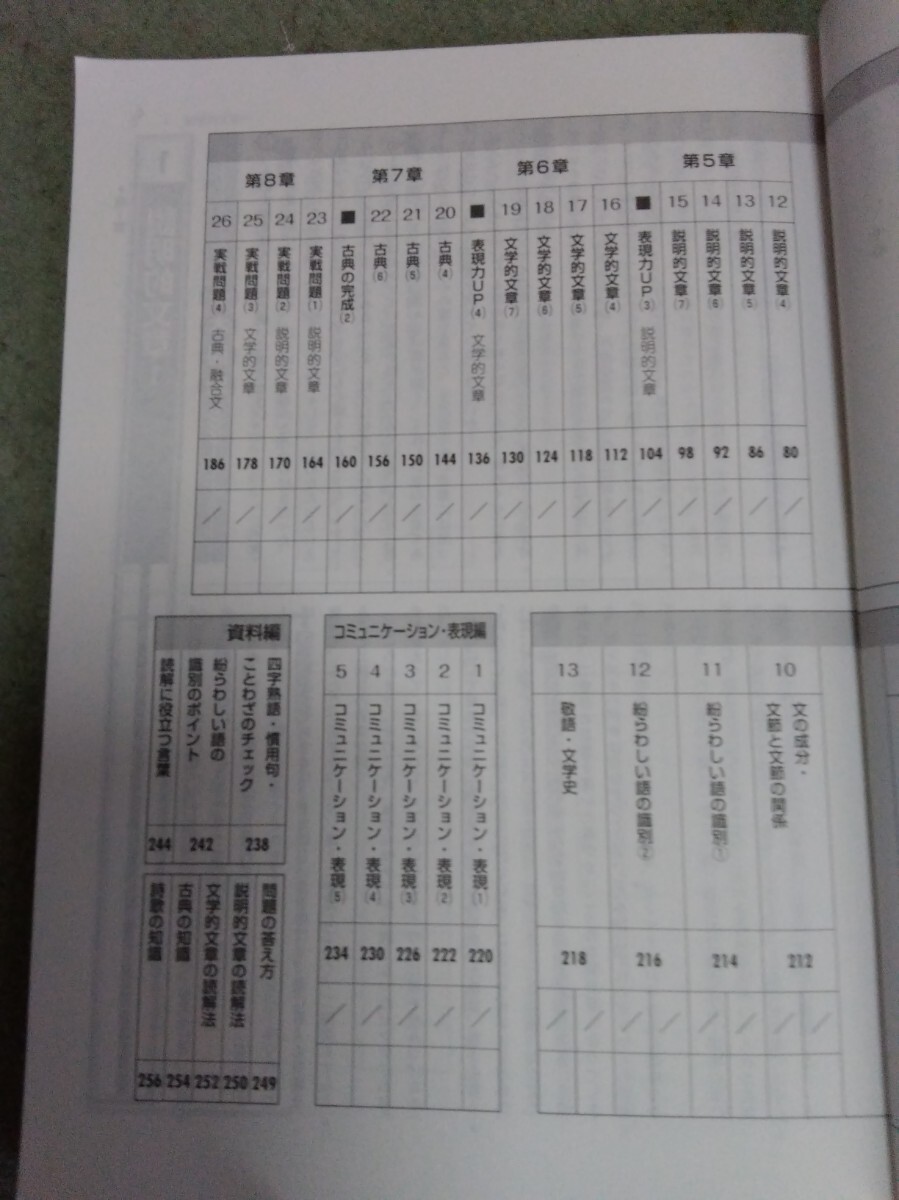 第5章
12 説明的文章(4) 80
13 説明的文章(5) 86
14 説明的文章(6) 92
15 説明的文章(7) 98
■ 表現力UP(3) 説明的文章 104
第6章
16 文学的文章(4) 112
17 文学的文章(5) 118
18 文学的文章(6) 124
19 文学的文章(7) 130
■ 表現力UP(4) 文学的文章 136
第7章
20 古典(4) 144
21 古典(5) 150
22 古典(6) 156
■ 古典の完成(2) 160
第8章
23 実戦問題(1) 説明的文章 164
24 実戦問題(2) 説明的文章 170
25 実戦問題(3) 文学的文章 178
26 実戦問題(4) 古典・融合文 186
10 文の成分・
文節と文節の関係 212
11 紛らわしい語の識別① 214
12 紛らわしい語の識別② 216
13 敬語・文学史 218
コミュニケーション・表現編
1 コミュニケーション・表現(1) 220
2 コミュニケーション・表現(2) 222
3 コミュニケーション・表現(3) 226
4 コミュニケーション・表現(4) 230
5 コミュニケーション・表現(5) 234
資料編
四字熟語・慣用句・
ことわざのチェック 238
紛らわしい語の
識別のポイント 242
読解に役立つ言葉 244
問題の答え方 249
説明的文章の読解法 250
文学的文章の読解法 252
古典の知識 254
詩歌の知識 256